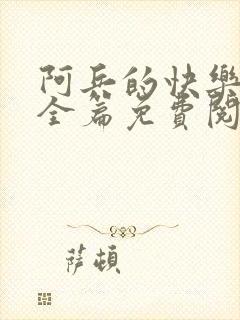 阿兵的快樂
全篇免費閱
薩頓